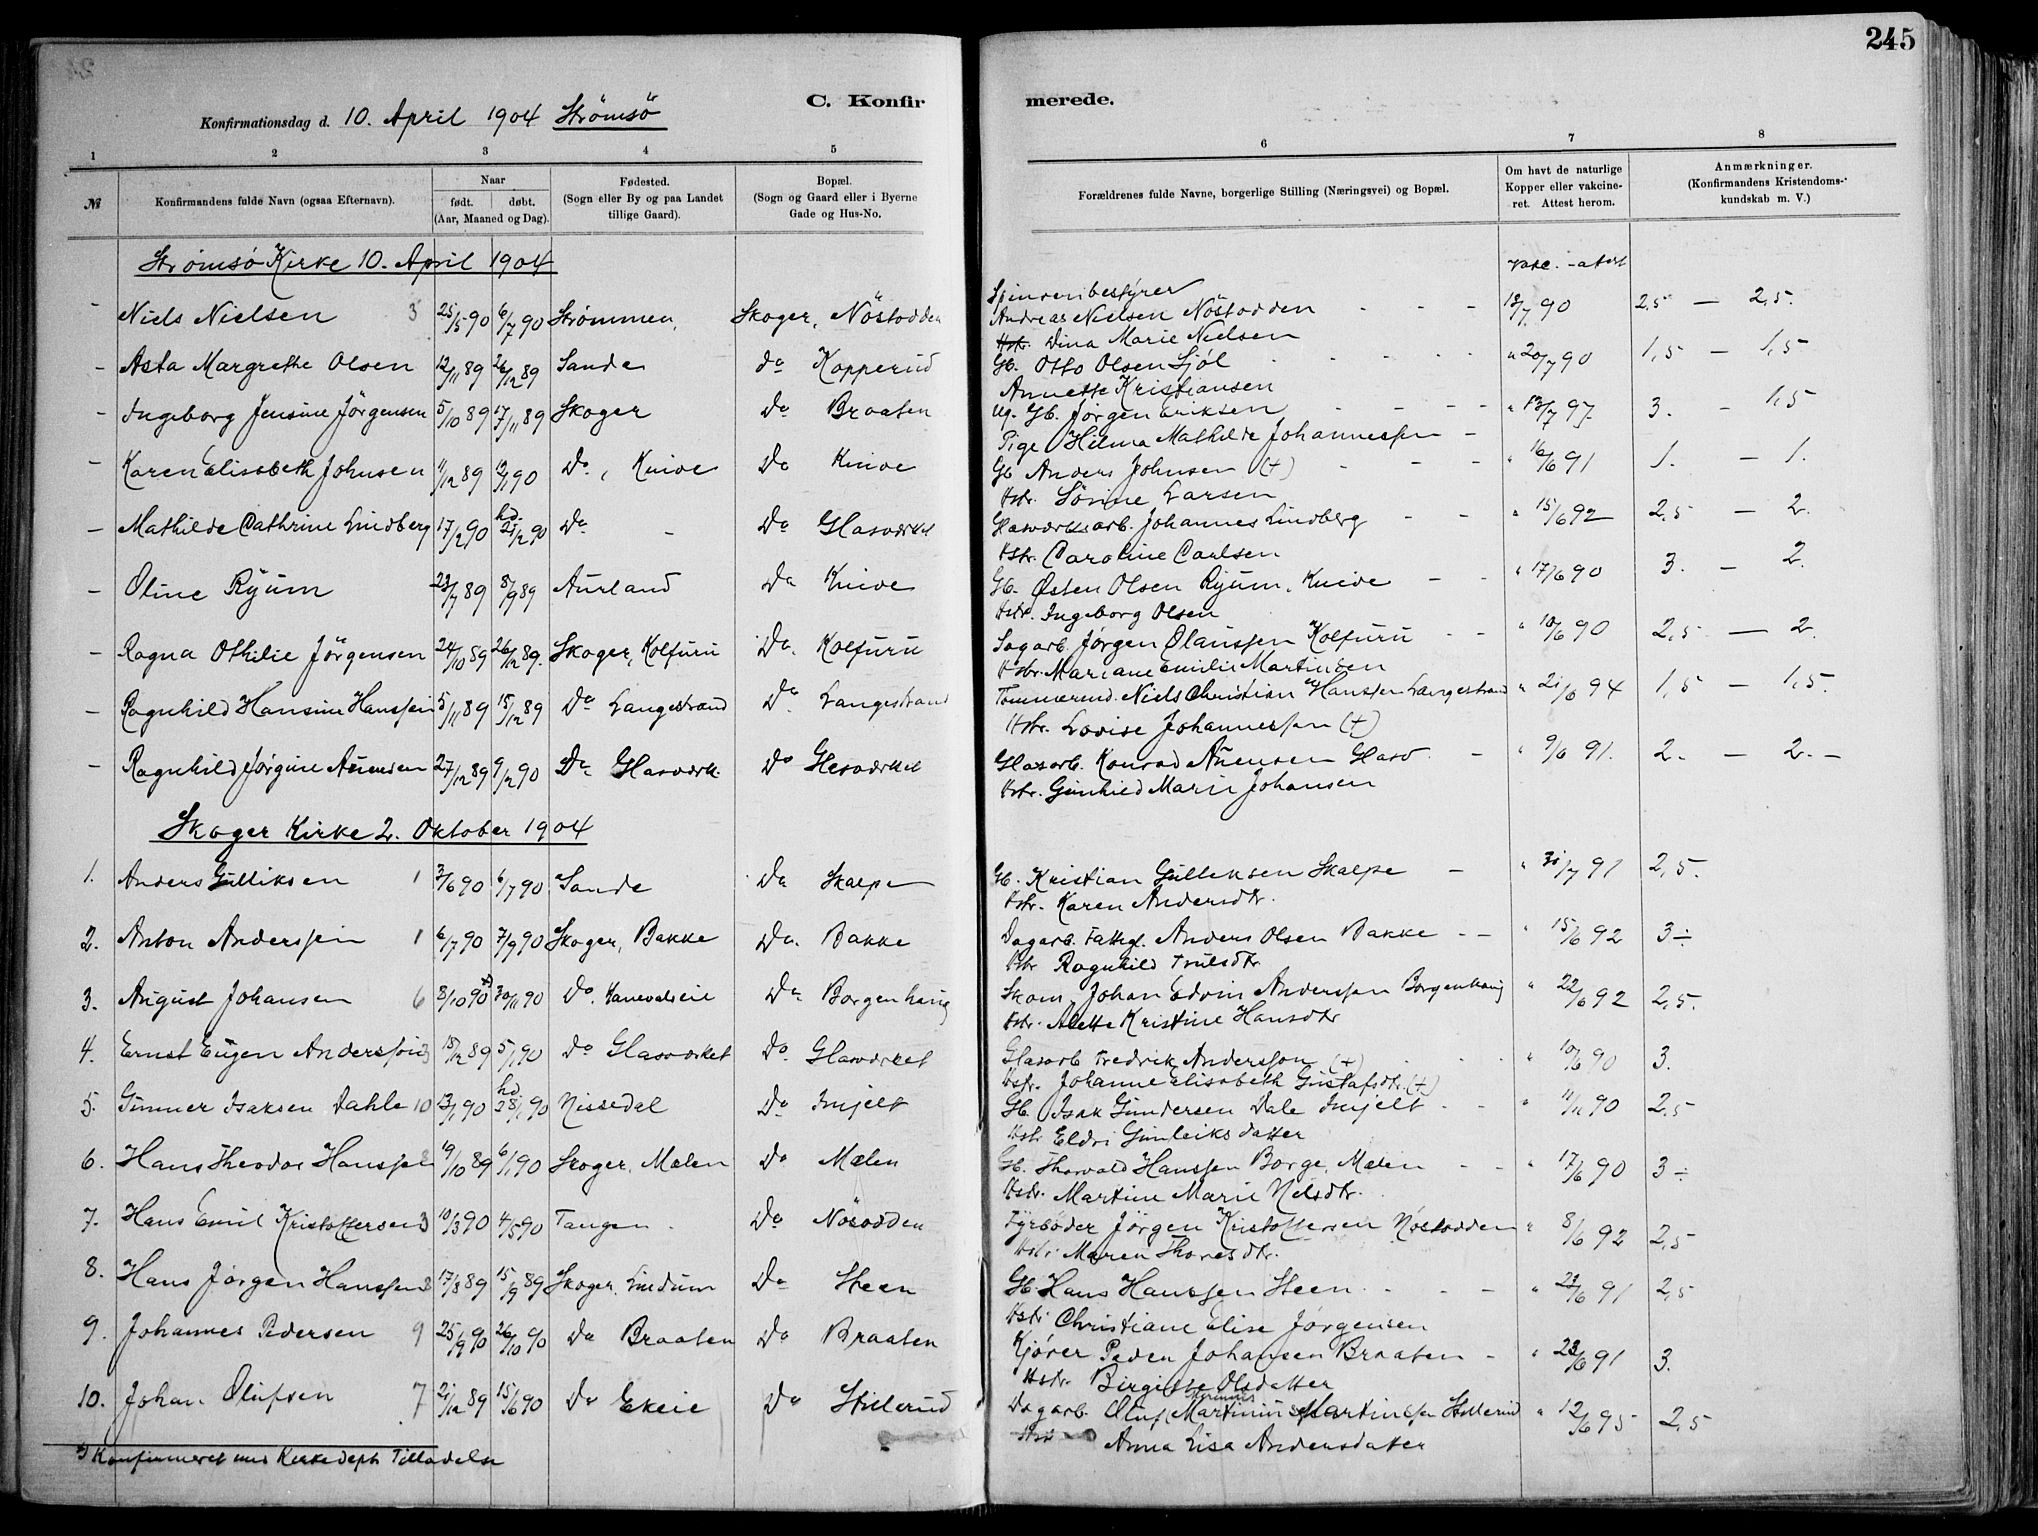 245
C. Konfirmerede.
Konfirmationsdag d. 10. April 1904 Strømsö
1 2 3 4 5 6 7 8
№ Konfirmandens fulde Navn (ogsaa Efternavn). Naar født. døbt. (Aar, Maaned og Dag). Fødested. (Sogn eller By og paa Landet tillige Gaard). Bopæl. (Sogn og Gaard eller i Byerne Gade og Hus-No. Forældrenes fulde Navne, borgerlige Stilling (Næringsvei) og Bopæl. Om havt de naturlige Kopper eller vakcineret. Attest herom. Anmærkninger. (Konfirmandens Kristendomskundskab m. V.)
Strømsö Kirke 10. April 1904 vacc. - attest
Spinneribestyrer
– Niels Nielsen 3 25/5 90 6/7 90 Strømmen, Skoger, Nöstodden Andreas Nielsen Nöstodden 13/7 90 2.5 – 2,5.
Hstr. Dina Marie Nielsen
– Asta Margrethe Olsen 12/11 89 26/12 89 Sande Do Kopperud Gb. Otto Olsen Sjöl " 20/7 90 1,5 – 1,5
Annette Kristiansen
– Ingeborg Jensine Jörgensen 5/10 89 17/11 89 Skoger Do Braaten Ug. Gb. Jörgen Eriksen " 13/7 97. 3. – 1,5
Pige Hilma Mathilde Johannessen
– Karen Elisabeth Johnsen 11/12 89 12/1 90 Do, Knive Do Knive Gb Anders Johnsen (+) " 16/6 91 1. – 1.
Hstr. Sörine Larsen
– Mathilde Cathrine Lindberg 17/2 90 hd. 21/2 90 Do – Do Glasværket Glasværksarb. Johannes Lindberg " 15/6 92 2.5 – 2.
Hstr. Caroline Carlsen
– Oline Ryum 23/7 89 8/9 89 Aurland Do Knive Gb. Østen Olsen Ryum, Knive " 17/6 90 3. – 2.
Hstr. Ingeborg Olsen
– Ragna Othilie Jörgensen 24/10 89 26/12 89. Skoger, Kolfuru Do. Kolfuru Sagarb. Jörgen Olaussen Kolfuru " 10/6 90 2,5 – 2.
Hstr. Mariane Emilie Martinsen
– Ragnhild Hansine Hanssen 5/11 89 15/12 89 Do Langestrand Do. Langestrand Tømmermd. Niels Christian Hanssen Langestrand " 21/6 94 1,5 – 1,5.
Hstr. Lovise Johannessen (+)
– Ragnhild Jörgine Auensen 27/12 89 9/2 90 Do Glasværk. Do Glasværket Glasarb. Konrad Auensen Glasv. " 9/6 91. 2. – 2. –
Hstr. Gunhild Marie Johansen
Skoger Kirke 2. Oktober 1904
1. Anders Gulliksen 1 3/6 90 6/7 90 Sande Do Skalpe Gb. Kristian Gulleksen Skalpe – " 31/7 91 2,5.
Hstr. Karen Andersdtr.
2. Anton Anderssen 1 6/7 90 7/9 90 Skoger, Bakke Do. Bakke Dagarb. Fattigl. Anders Olsen Bakke – – " 15/6 92 3÷
Hstr Ragnhild Trulsdtr.
3. August Johansen 6 8/10 90 *) 30/11 90 Do. Do. Borgenhaug Skom. Johan Edvin Anderssen Borgenhaug " 22/6 92 2,5.
Hstr. Alette Kristine Hansdtr
4. Ernst Eugen Andersson 3 18/12 89 5/1 90 Do Glasværket Do. Glasværket Glasarb Fredrik Andersson (+) " 10/6 90 3.
Hstr. Johanne Elisabeth Gustafsdtr. (+)
5. Gunner Isaksen Dahle 10 13/1 90 hd. 28/1 90 Nissedal Do Injelt Gb. Isak Gundersen Dale Injelt " 11/11 90 2,5
Hstr Eldri Gunleiksdatter
6. Hans Theodor Hanssen 3 19/10 89 6/1 90 Skoger, Mælen Do Mælen Gb. Thorvald Hanssen Borge, Mælen " 17/6 90 3÷
Hstr. Martine Marie Nilsdtr.
7. Hans Emil Kristoffersen 3 10/3 90 4/5 90 Tangen Do Nösodden Fyrbøder Jörgen Kristoffersen Nöstodden " 8/6 92 2,5
Hstr: Maren Thoresdtr.
8. Hans Jörgen Hanssen 3 17/8 89 15/9 89 Skoger, Lindum Do Steen Gb. Hans Hanssen Steen " 23/6 91 2,5
Hstr: Christiane Elise Jörgensen
9. Johannes Pedersen 9 25/9 90 26/10 90 Do Braaten Do Braaten Kjører Peder Johansen Braaten – " 23/6 91 3.
Hstr. Birgitte Olsdatter
10. Johan Olufsen 7 21/12 89 15/6 90 Do Ekeie Do Stillerud Dagarb. Oluf Martinius Martinsen Stillerud " 12/6 95 2,5
Anna Lisa Andersdatter
*) Konfirmeret med Kirkedepts Tilladelse